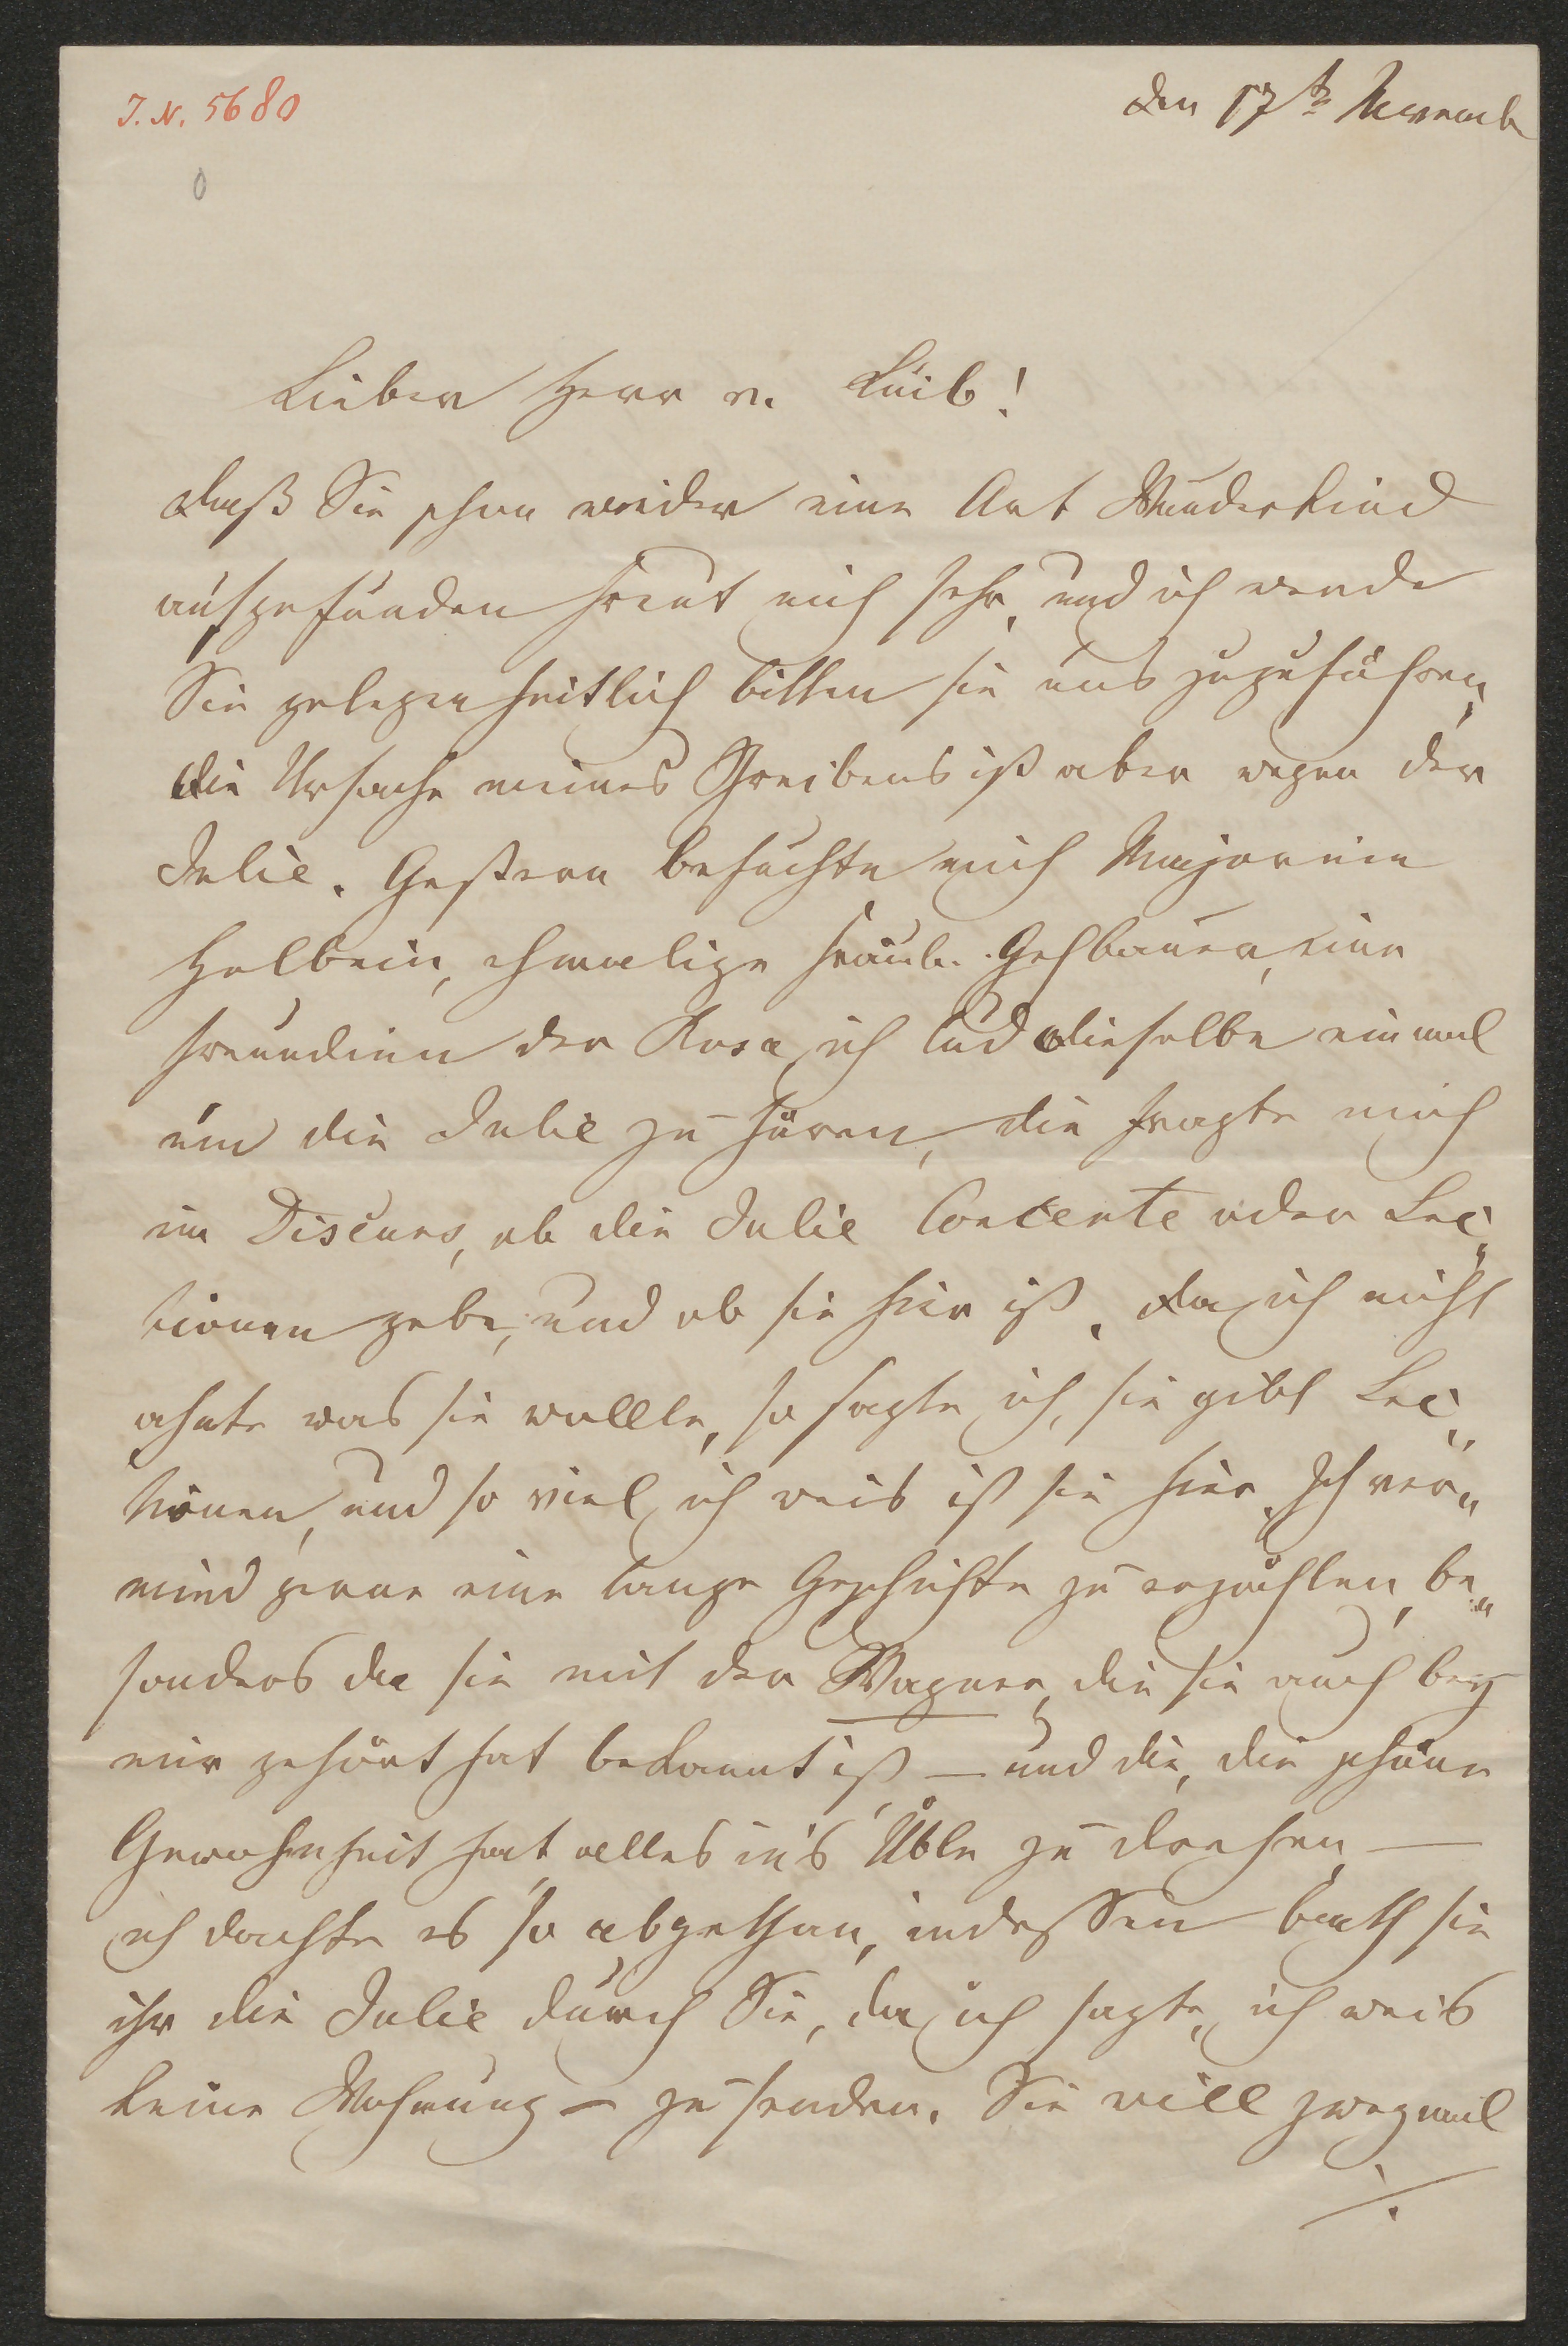 J. N. 5680
den 17t November
0
Lieber Herr v. Luib!
daß Sie schon wieder eine Art Wunderkind
aufgefunden freut mich sehr, und ich werde
Sie gelegenheitlich bitten sie uns zuzuführen,
die Ursache meines Schreibens ist aber wegen der
Julie. Gestern besuchte mich Majorinn
Holbein, ehmalige Fräul. Gehbauer, eine
Freundinn der Rosa, ich lud dieselbe einmal
um die Julie zu hören, die fragte mich
im Discurs, ob die Julie Concerte oder Lec„
tionen gebe, und ob sie hier ist. da ich nicht
ahnte was sie wollte, so sagte ich, sie gibt Lec„
tionen, und so viel ich weis ist sie hier. Ich ver„
mied gerne eine lange Geschichte zu erzählen, be„
sonders da sie mit der Wagner, die sie auch bey
mir gehört hat bekannt ist — und die, die schöne
Gewohnheit hat alles in's Üble zu drehen —
ich dachte es so abgethan, indessen bath sie
ihr die Julie durch Sie, da ich sagte, ich weis
keine Wohnung — zu senden. Sie will zweymal
./.